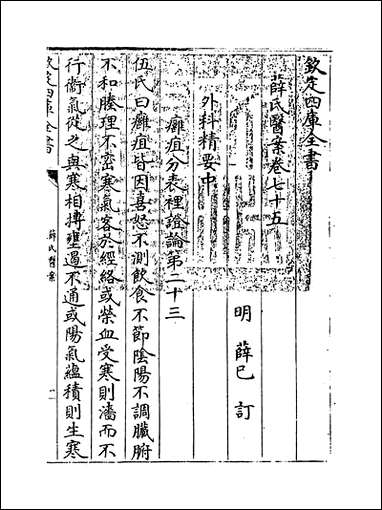 欽定四庫全書
薛氏醫案卷七十五
明 薛己 訂
外科精要中
癰疽分表裡證論第二十三
伍氏曰癰疽皆因喜怒不測飲食不節陰陽不調臟腑
不和腠理不密寒氣客於經絡或榮血受寒則濇而不
行衛氣從之與寒相搏壅遏不通或陽氣蘊積則生寒
欽定四庫全書
薛氏醫案
一